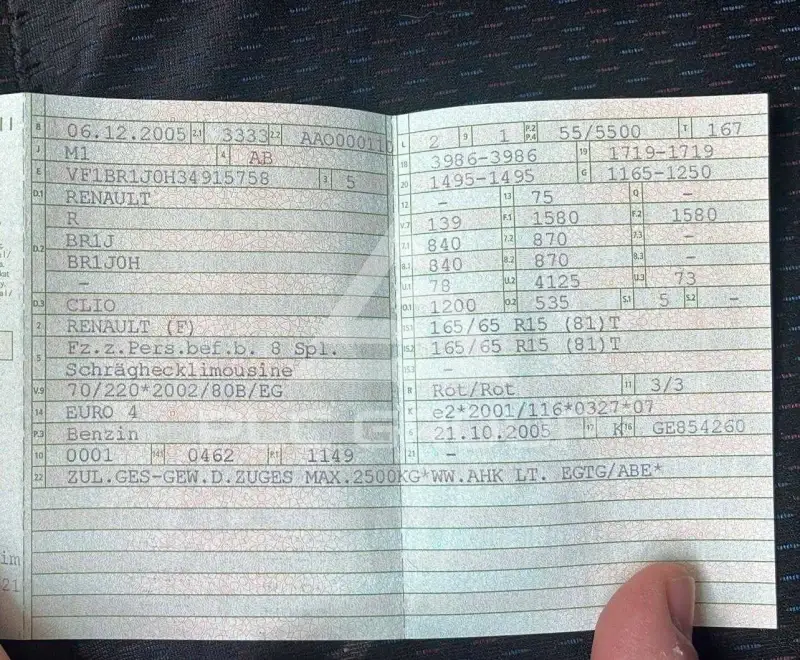 B 06.12.2005 2.1 3333 2.2 AAO000110
J M1 4 AB
E VF1BR1J0H34915758 3 5
D.1 RENAULT
R
D.2 BR1J
BR1J0H
–
D.3 CLIO
2 RENAULT (F)
5 Fz.z.Pers.bef.b. 8 Spl.
Schräghecklimousine
V.9 70/220*2002/80B/EG
14 EURO 4
P.3 Benzin
10 0001 14.1 0462 P.1 1149
22 ZUL.GES-GEW.D.ZUGES MAX.2500KG*WW.AHK LT. EGTG/ABE*
L 2 9 1 P.2 P.4 55/5500 T 167
18 3986-3986 19 1719-1719
20 1495-1495 G 1165-1250
12 – 13 75 Q –
V.7 139 F.1 1580 F.2 1580
7.1 840 7.2 870 7.3 –
8.1 840 8.2 870 8.3 –
U.1 78 U.2 4125 U.3 73
O.1 1200 O.2 535 S.1 5 S.2 –
15.1 165/65 R15 (81)T
15.2 165/65 R15 (81)T
15.3 –
R Rot/Rot 11 3/3
K e2*2001/116*0327*07
6 21.10.2005 17 K 16 GE854260
21 –
im
21